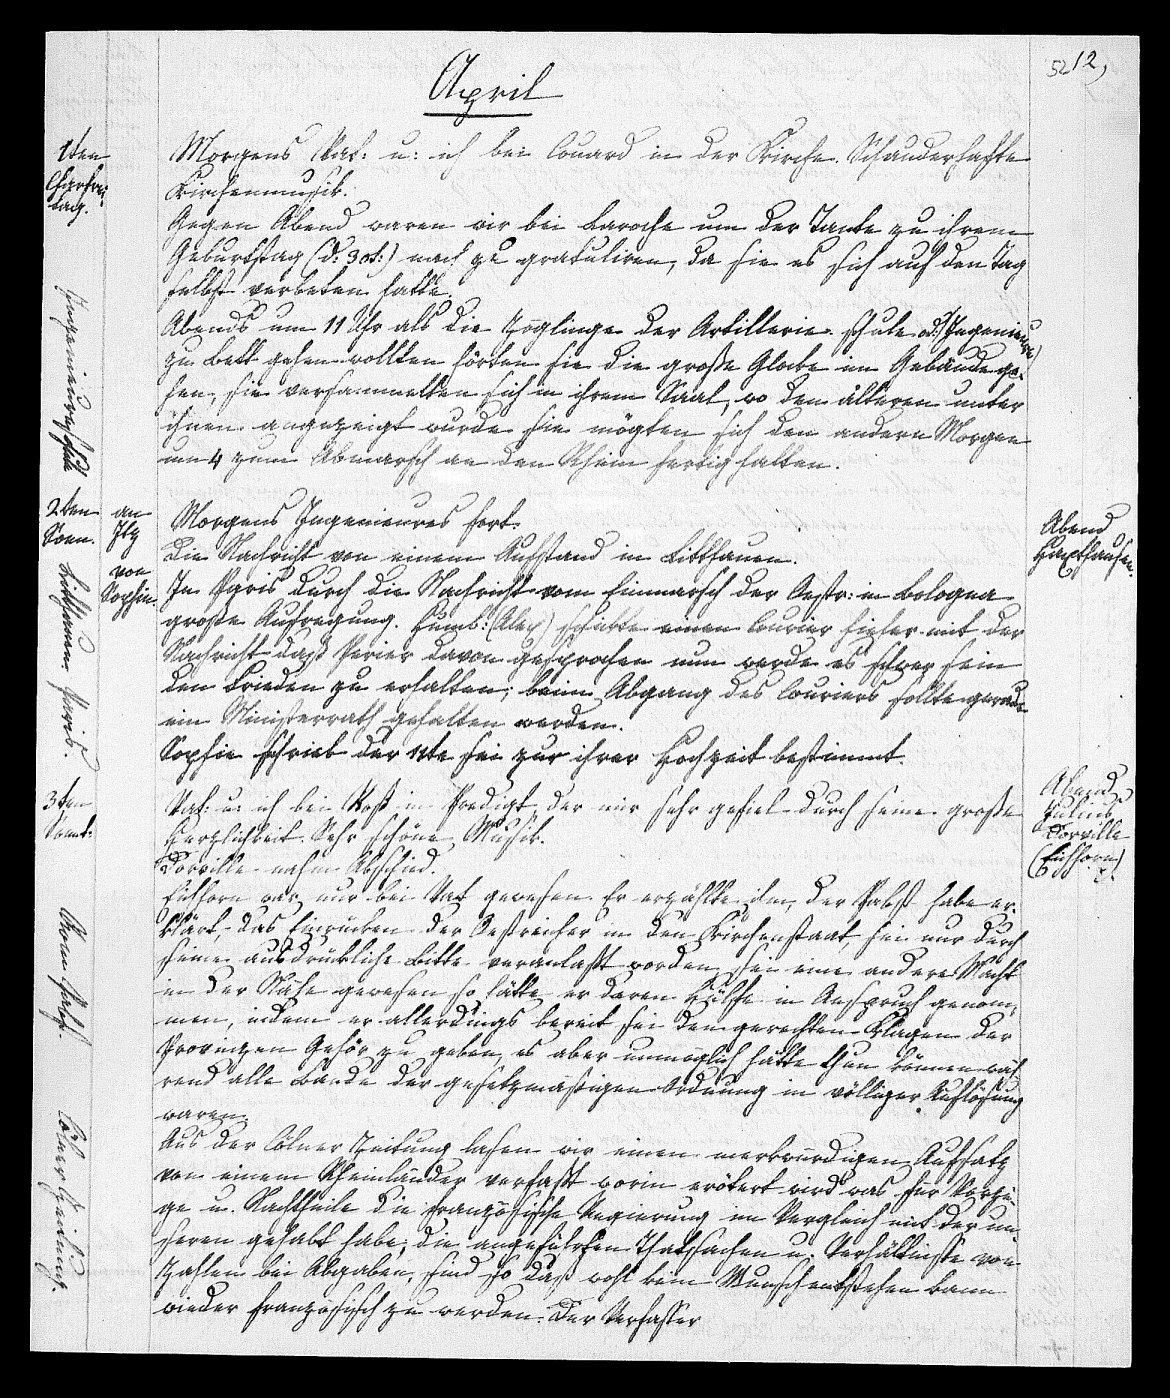 52 12,
April
1ten
Charfrei
tag.
Morgens Vat: u: ich bei Couard in der Kirche. Schauderhafte
Kirchenmusik.
Gegen Abend waren wir bei Laroche um der Tante zu ihrem
Geburtstag (d: 30t:) nach zu gratuliren, da sie es sich auf den Tag
selbst verbeten hatte.
Abends um 11 Uhr als die Zöglinge der Artillerie schule od: Ingenieure
zu Bett gehen wollten hörten sie die große Glocke im Gebäude ge-
hen, sie versammelten sich in ihrem Saal, wo den älteren unter
ihnen angezeigt wurde sie mögten sich den andern Morgen
um 4 zum Abmarsch an den Rhein fertig halten.
Ingenieurschule
2ten
Soen.
an
Itz
von
Sophie
Morgens Ingenieures fort.
Die Nachricht von einem Aufstand in Litthauen.
In Paris durch die Nachricht vom Einmarsch der Oestr: in Bologna
große Aufregung. Humb: (Alex) schickte einen Courier hieher mit der
Nachricht daß Perier davon gesprochen nun werde es schwer sein
den Frieden zu erhalten; beim Abgang des Couriers sollte gerade
ein Ministerrath gehalten werden.
Sophie schrieb der 11te sei zur ihrer Hochzeit bestimmt.
Litthauen Paris.
Abend
Haxthausen.
3ten
Sonnt:
Vat: u: ich bei Voß in Predigt, der mir sehr gefiel durch seine große
Herzlichkeit. Sehr schöne Musik.
Dorville nahm Abschied.
Eichhorn war nur bei Vat gewesen. Er erzählte ihm, der Pabst habe er-
klärt, das Einrücken der Oestreicher in den Kirchenstaat, sei nur durch
seine ausdrückliche Bitte veranlaßt worden, sei eine andere Macht
in der Nähe gewesen so hätte er deren Hülfe in Anspruch genom-
men, indem er allerdings bereit sei den gerechten Klagen der
Provinzen Gehör zu geben, es aber unmöglich hätte thun können wäh
rend alle Bande der gesetzmäßigen Ordnung in völliger Auflösung
waren.
Aus der Cölner Zeitung lasen wir einen merkwürdigen Aufsatz
von einem Rheinländer verfaßt worin erötert wird was für Vorzü-
ge u. Nachtheile die französische Regierung im Vergleich mit der un-
seren gehabt habe; die angeführten Thatsachen u. Verhältnisse von
Zahlen bei Abgaben, sind so daß wohl kein Wunsch entstehen kann
wieder französisch zu werden. Der Verfasser
Abend
Julius
Dorville
(Eichhorn)
Cölner Zeitung.